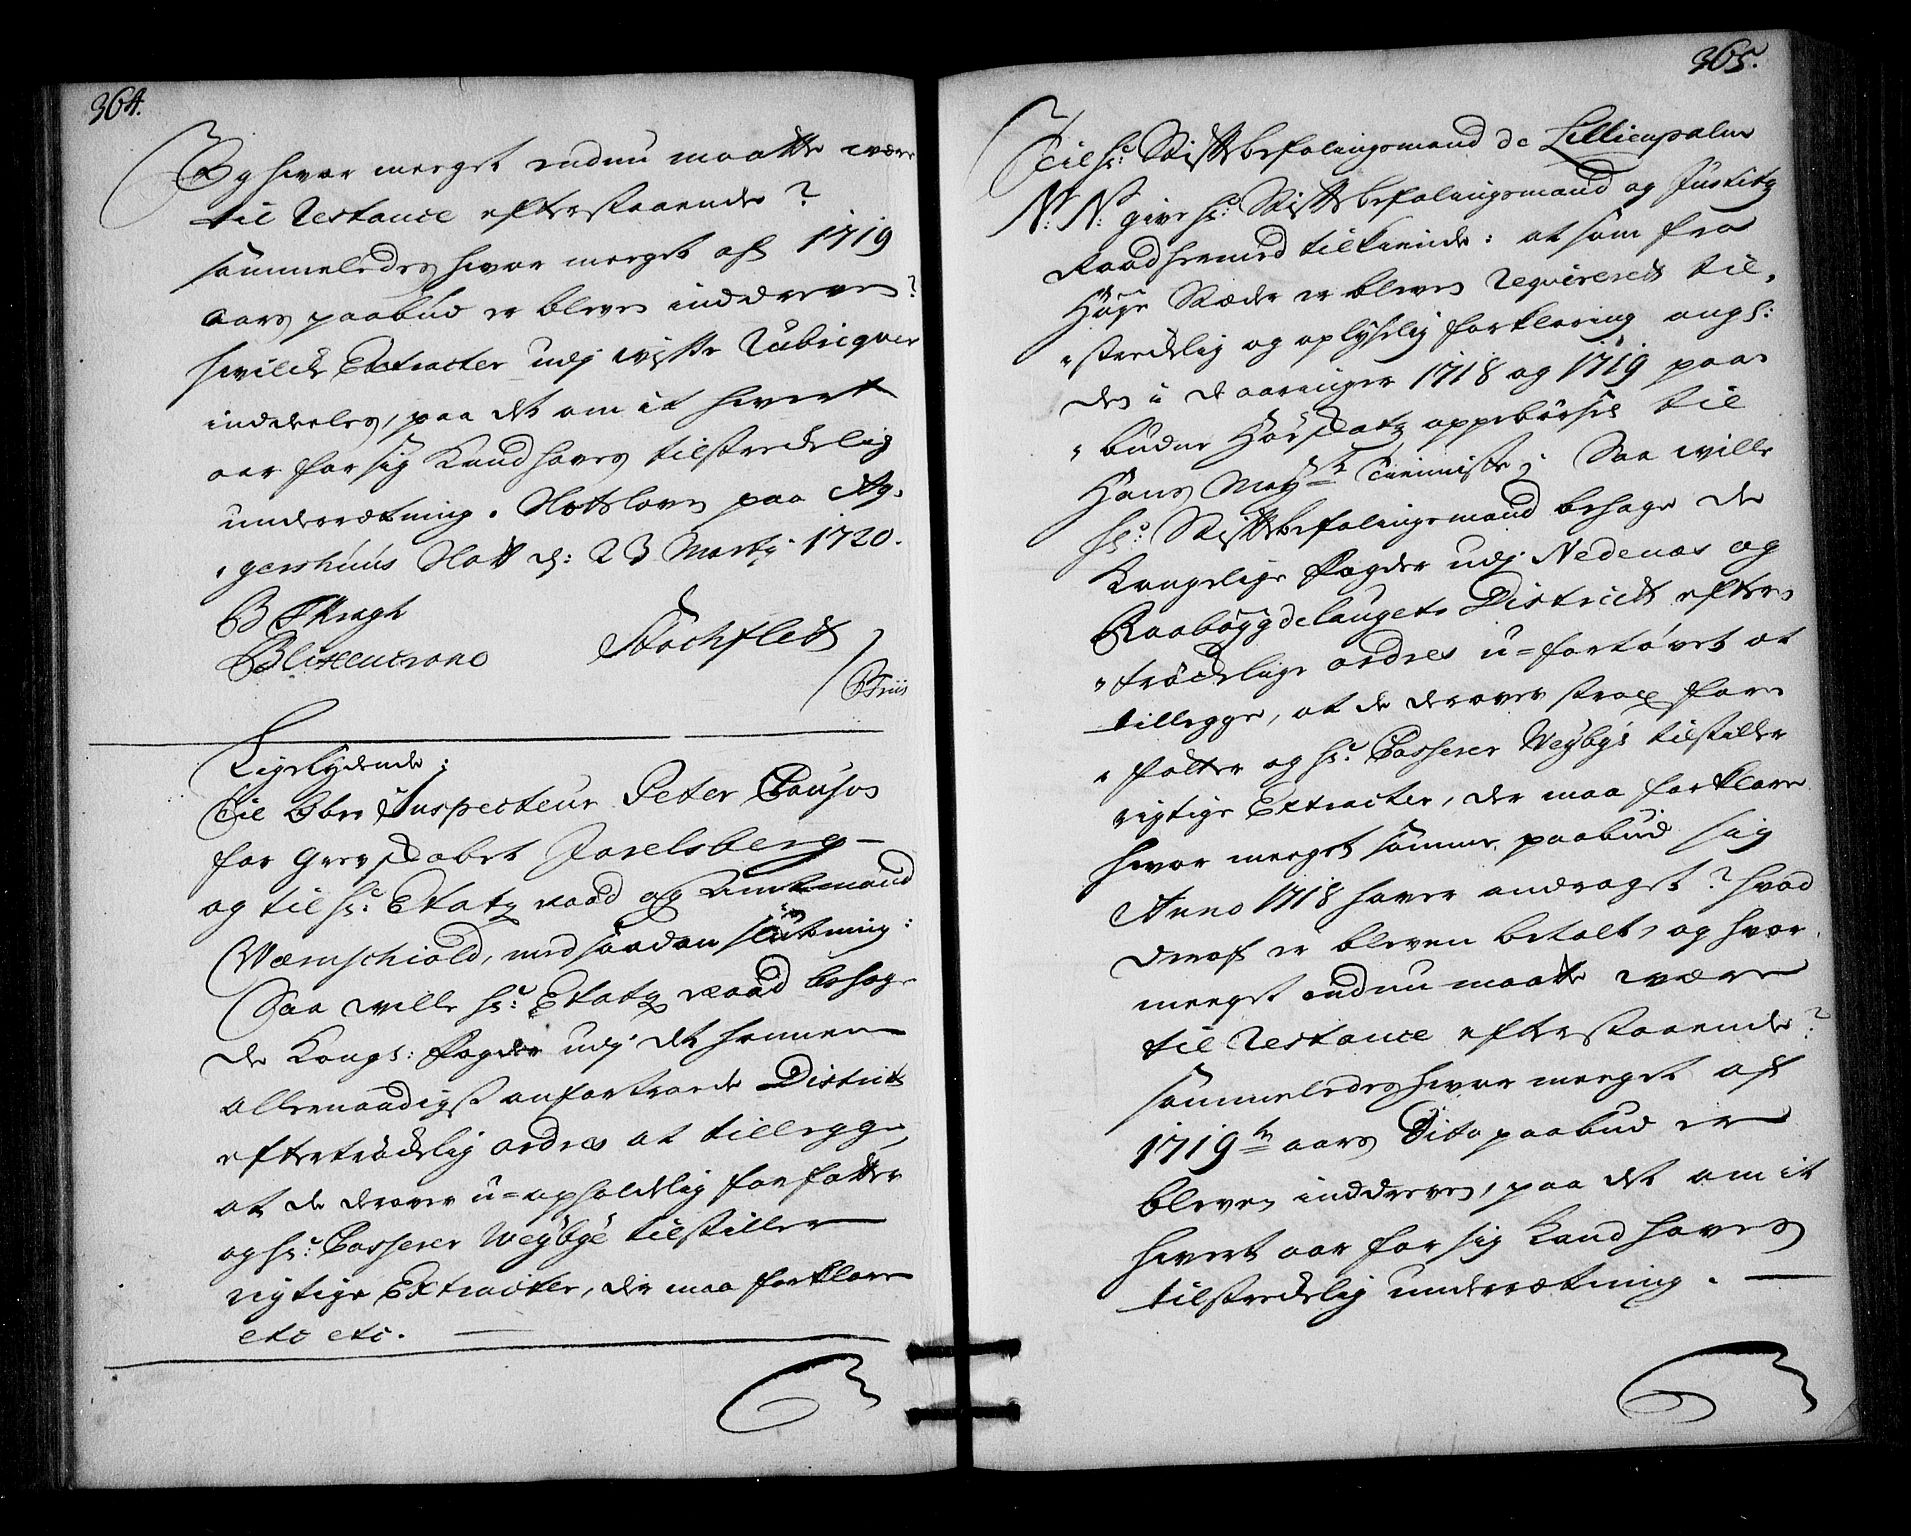 364.
Og hvor meeget endnu maatte være
til Restance efterstaaende?
sammeledes hvor meeget af 1719
aars paabud er bleven inddreven?
hvilcke Extracter udj visse Rubriqver
inddeeles, paa det om it hvert
aar for sig kand haves tilstrechelig
underrætning. Slottsloven paa Ag-
gershuus Slott d: 23 Martij 1720.
B Kragh
Blixencrone Stochfledt
Friis
Ligelydende:
Til Ober Inspecteur Peter Pauson
for Grevskabet Jarelsberg
og til hr: Etatz raad og Amtmand
Wærnschiold, med saadan slutning:
Saa ville hr: Etatz raad behage
de Kongl: Fogder udj det hannem
allernaadigst anfortroede District
eftertrøckelig ordres at tillegge,
at de derover u-opholdelig forfatter
og hr: Casserer Weybye tilstiller
rigtige Extracter, der maa forklare
etc etc.
365.
Til hr: Stiftbefalingsmand de Lillienpalm
N: N: give hr: Stiftbefalingsmand og Justitz
Raad hermed tilkiende: at som fra
Høye Stæder er bleven requireret til-
strechelig og oplyselig forklaring angl:
den i de aaringer 1718 og 1719 paa-
budne Hør skatz oppebørsel til
Hans Maytz Tienniste; Saa wille
hr: Stiftbefalingsmand behage de
Kongelige Fogder udj Nedenæs og
Raabøygdelaugets District efter-
trøckelige ordres u-fortøvet at
tillegge, at de derover strax for-
fatter og hr: Casserer Weybye tilstiller
rigtige Extracter, der maa forklare
hvor meeget samme paabud sig
Anno 1718 haver andraget? hvad
deraf er bleven betalt, og hvor
meeget endnu maatte være
til Restance efterstaaende?
sammeledes hvor meeget af
1719 aars Dito paabud er
bleven inddreven, paa det om it
hvert aar for sig kand haves
tilstrechelig underrætning.